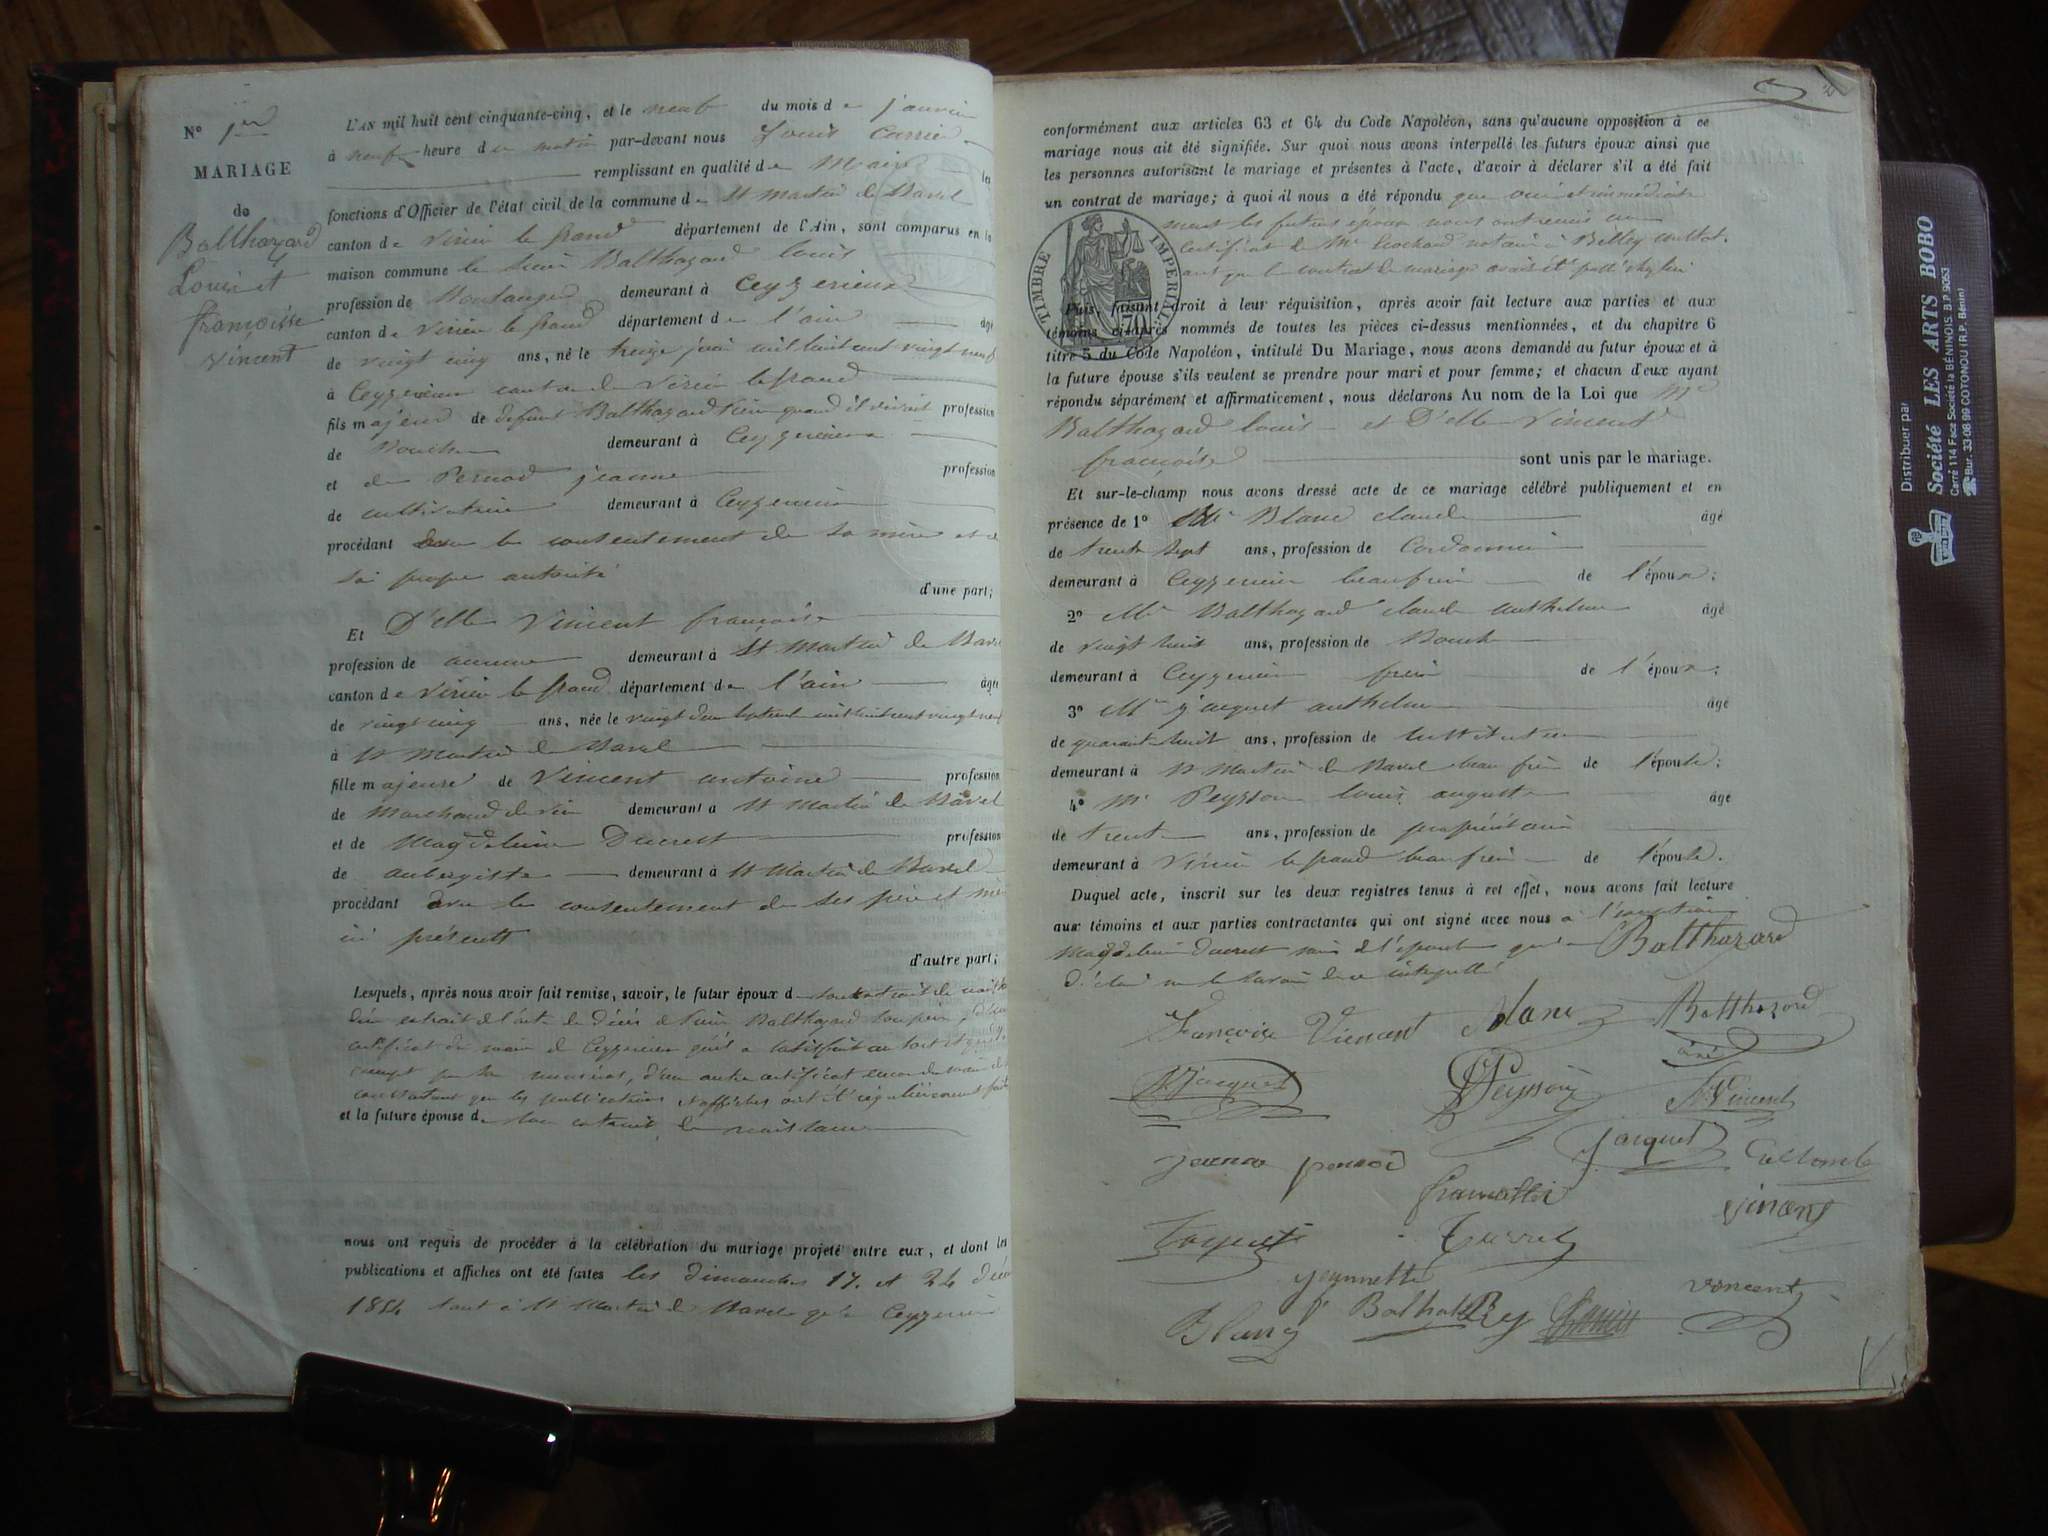 N° 1er
MARIAGE
de
Balthazard
Louis et
françoise
vincent
L'AN mil huit cent cinquante-cinq, et le neuf du mois de janvier
à neuf heure du matin par-devant nous Louis Carrier
remplissant en qualité de Maire les
fonctions d'Officier de l'état civil de la commune de St Martin de Bavel
canton de Virieu le grand département de l'Ain, sont comparus en la
maison commune le sieur Balthazard louis
profession de Boulanger demeurant à Ceyzerieux
canton de Virieu le grand département de l'ain âgé
de vingt cinq ans, né le treize juin mil huit cent vingt neuf
à Ceyzerieu canton de Virieu le grand
fils majeur de défunt Balthazard quand il vivait profession
de Boucher demeurant à Ceyzerieu
et de Pernod jeanne profession
de cultivatrice demeurant à Ceyzerieu
procédant avec le consentement de sa mère et de
sa propre autorité
d'une part;
Et D'elle Vincent françoise
profession de aucune demeurant à St Martin de Bavel
canton de Virieu le grand département de l'ain âgée
de vingt cinq ans, née le vingt deux mil huit cent vingt neuf
à St Martin de Bavel
fille majeure de Vincent antoine profession
de Marchand de vin demeurant à St Martin de Bavel
et de Magdeleine Ducrest profession
de aubergiste demeurant à St Martin de Bavel
procédant avec le consentement de ses père et mère
ici présents
d'autre part;
Lesquels, après nous avoir fait remise, savoir, le futur époux de son extrait de naissance
d'un extrait de l'acte de décès de Balthazard son père,
certificat du maire de Ceyzerieu qu'il a satisfait au sort et
exempt par son numéros, d'un autre certificat
constatant que les publications et affiches ont été régulièrement faites
et la future épouse de son extrait de naissance
nous ont requis de procéder à la célébration du mariage projeté entre eux, et dont les
publications et affiches ont été faites les dimanches 17. et 24 déc
1854 tant à St Martin de Bavel qu'à Ceyzerieu
conformément aux articles 63 et 64 du Code Napoléon, sans qu'aucune opposition à ce
mariage nous ait été signifiée. Sur quoi nous avons interpellé les futurs époux ainsi que
les personnes autorisant le mariage et présentes à l'acte, d'avoir à déclarer s'il a été fait
un contrat de mariage; à quoi il nous a été répondu que oui et immédiate
ment les futurs époux nous ont remis un
certificat de Me notaire à Belley constat.
ant que le contrat de mariage avait été passé chez lui
TIMBRE IMPERIAL
70
Puis, faisant droit à leur réquisition, après avoir fait lecture aux parties et aux
témoins ci-après nommés de toutes les pièces ci-dessus mentionnées, et du chapitre 6
titre 5 du Code Napoléon, intitulé Du Mariage, nous avons demandé au futur époux et à
la future épouse s'ils veulent se prendre pour mari et pour femme; et chacun d'eux ayant
répondu séparément et affirmativement, nous déclarons Au nom de la Loi que Mr
Balthazard louis et D'elle Vincent
françoise sont unis par le mariage.
Et sur-le-champ nous avons dressé acte de ce mariage célébré publiquement et en
présence de 1° Mr Blanc claude âgé
de trente sept ans, profession de Cordonnier
demeurant à Ceyzerieu beaufrère de l'époux;
2° Mr Balthazard claude anthelme âgé
de vingt huit ans, profession de Boucher
demeurant à Ceyzerieu frère de l'époux;
3° Mr jacquet anthelme âgé
de quarante huit ans, profession de Instituteur
demeurant à St Martin de Bavel beau frère de l'épouse;
4° Mr Peysson louis auguste âgé
de trente ans, profession de propriétaire
demeurant à Virieu le grand beaufrère de l'épouse.
Duquel acte, inscrit sur les deux registres tenus à cet effet, nous avons fait lecture
aux témoins et aux parties contractantes qui ont signé avec nous à l'exception
Magdeleine Ducrest mère de l'épouse qui a Balthazard
déclaré ne le savoir de ce interpellé
Françoise Vincent Blanc Balthazard
ainé
A Jacquet Peysson A Vincent
jeanne pernod jacquet Collomb
françoise vincent
Jacquet
jeannette vincent
Blanc Balthazard Rey Carrier
Distribuer par
Société LES ARTS BOBO
Carré 114 Face Société la BÉNINOIS. B.P 9063
Bur. 33-08-99 COTONOU (R.P. Bénin)